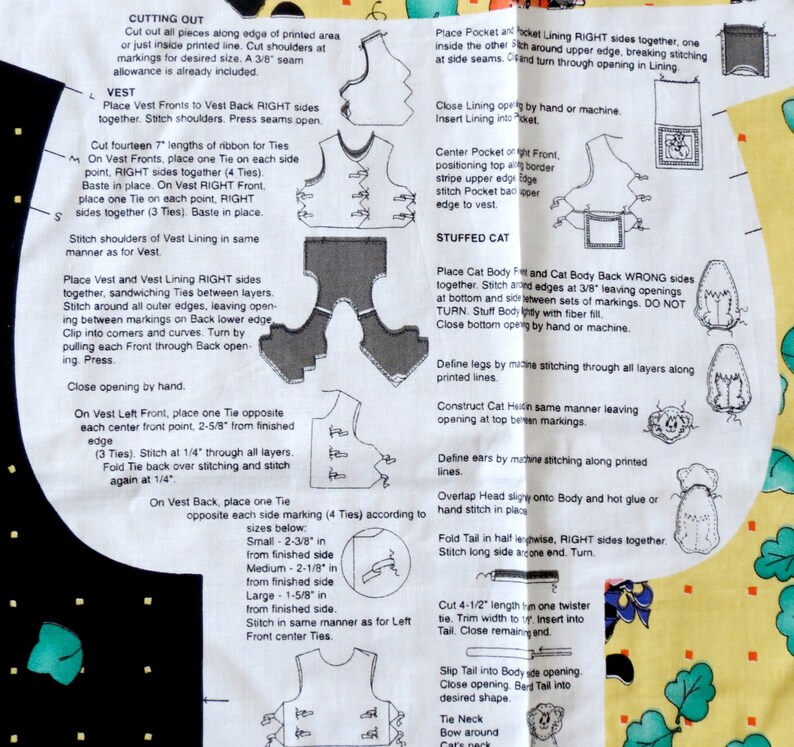 CUTTING OUT
Cut out all pieces along edge of printed area
or just inside printed line. Cut shoulders at
markings for desired size. A 3/8" seam
allowance is already included.
L
VEST
Place Vest Fronts to Vest Back RIGHT sides
together. Stitch shoulders. Press seams open.
Cut fourteen 7" lengths of ribbon for Ties
M
On Vest Fronts, place one Tie on each side
point, RIGHT sides together (4 Ties).
Baste in place. On Vest RIGHT Front,
place one Tie on each point, RIGHT
S
sides together (3 Ties). Baste in place.
Stitch shoulders of Vest Lining in same
manner as for Vest.
Place Vest and Vest Lining RIGHT sides
together, sandwiching Ties between layers.
Stitch around all outer edges, leaving open-
ing between markings on Back lower edge.
Clip into corners and curves. Turn by
pulling each Front through Back open-
ing. Press.
Close opening by hand.
On Vest Left Front, place one Tie opposite
each center front point, 2-5/8" from finished
edge
(3 Ties). Stitch at 1/4" through all layers.
Fold Tie back over stitching and stitch
again at 1/4".
On Vest Back, place one Tie
opposite each side marking (4 Ties) according to
sizes below:
Small - 2-3/8" in
from finished side
Medium - 2-1/8" in
from finished side
Large - 1-5/8" in
from finished side.
Stitch in same manner as for Left
Front center Ties.
Place Pocket and Pocket Lining RIGHT sides together, one
inside the other Stitch around upper edge, breaking stitching
at side seams. Clip and turn through opening in Lining.
Close Lining opening by hand or machine.
Insert Lining into Pocket.
Center Pocket on Right Front,
positioning top along border
stripe upper edge Edge
stitch Pocket back upper
edge to vest.
STUFFED CAT
Place Cat Body Front and Cat Body Back WRONG sides
together. Stitch around edges at 3/8" leaving openings
at bottom and side between sets of markings. DO NOT
TURN. Stuff Body lightly with fiber fill.
Close bottom opening by hand or machine.
Define legs by machine stitching through all layers along
printed lines.
Construct Cat Head in same manner leaving
opening at top between markings.
Define ears by machine stitching along printed
lines.
Overlap Head slighly onto Body and hot glue or
hand stitch in place
Fold Tail in half lengthwise, RIGHT sides together.
Stitch long side and one end. Turn.
Cut 4-1/2" length from one twister
tie. Trim width to Insert into
Tail. Close remaining end.
Slip Tail into Body side opening.
Close opening. Bend Tail into
desired shape.
Tie Neck
Bow around
Cat's neck